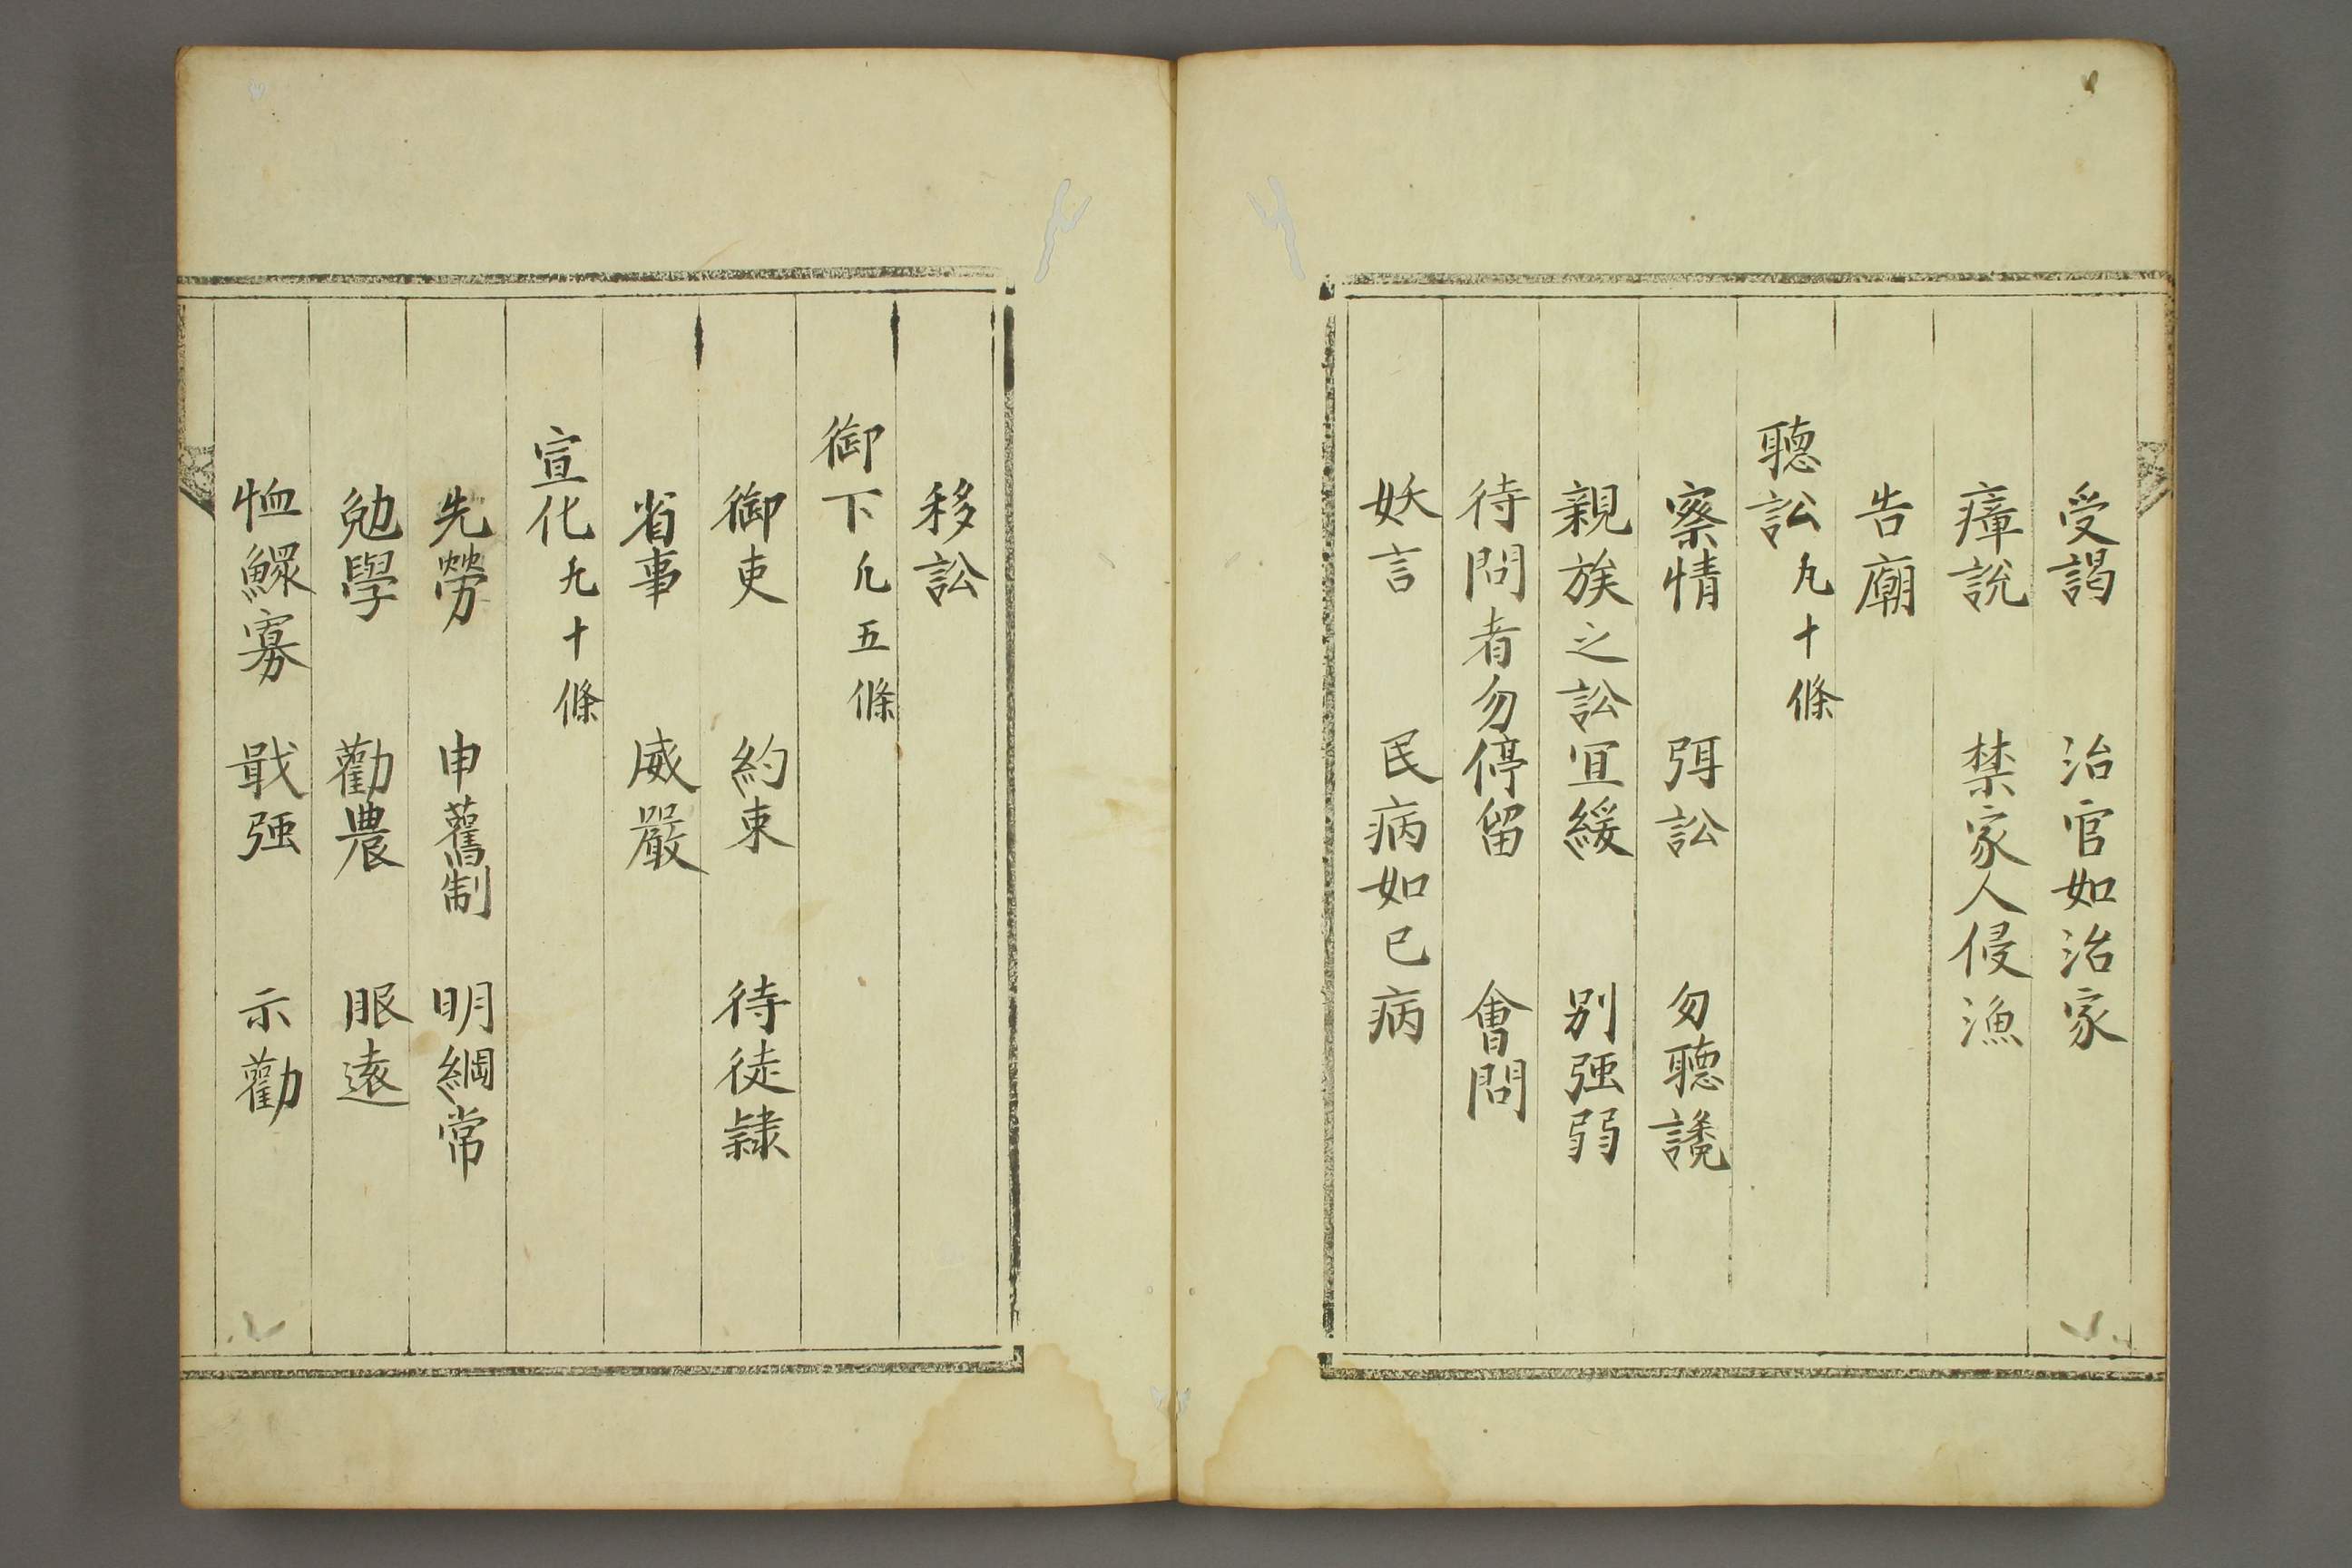 受謁 治官如治家
瘴說 禁家人侵漁
告廟
聽訟凡十條
察情 弭訟 勿聽讒
親族之訟宜緩 别强弱
待問者勿停留 會問
妖言 民病如已病
移訟
御下凡五條
御吏 約束 待徒隷
省事 威嚴
宣化凡十條
先勞 申舊制 明綱常
勉學 勸農 服遠
恤鰥寡 戢强 示勸